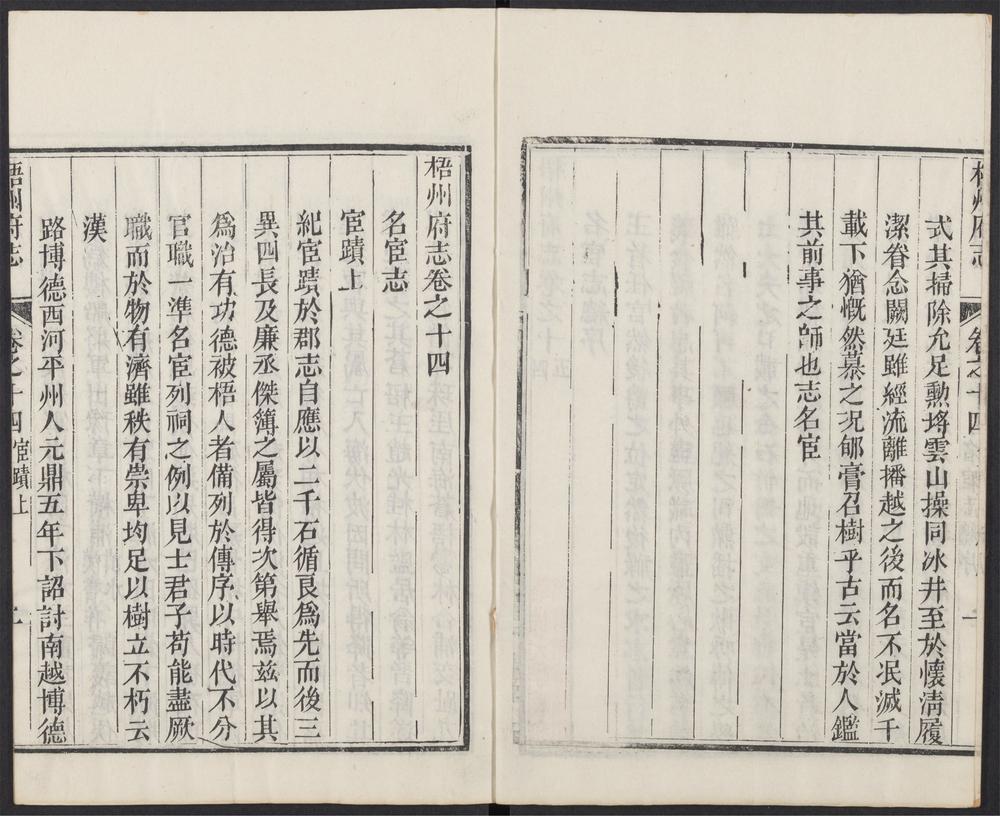 梧州府志
卷之十四
一
式其掃除允足勲埓雲山操同冰井至於懷淸履
潔眷念闕廷雖經流離播越之後而名不泯滅千
載下猶慨然慕之况郇膏召樹乎古云當於人鑑
其前事之師也志名宦
梧州府志卷之十四
名宦志
宦蹟上
紀宦蹟於郡志自應以二千石循良爲先而後三
異四長及廉丞傑簿之屬皆得次第舉焉兹以其
爲治有功德被梧人者備列於傳序以時代不分
官職一準名宦列祠之例以見士君子苟能盡厥
職而於物有濟雖秩有崇卑均足以樹立不朽云
漢
路博德西河平州人元鼎五年下詔討南越博德
梧州府志
卷之十四 宦蹟上